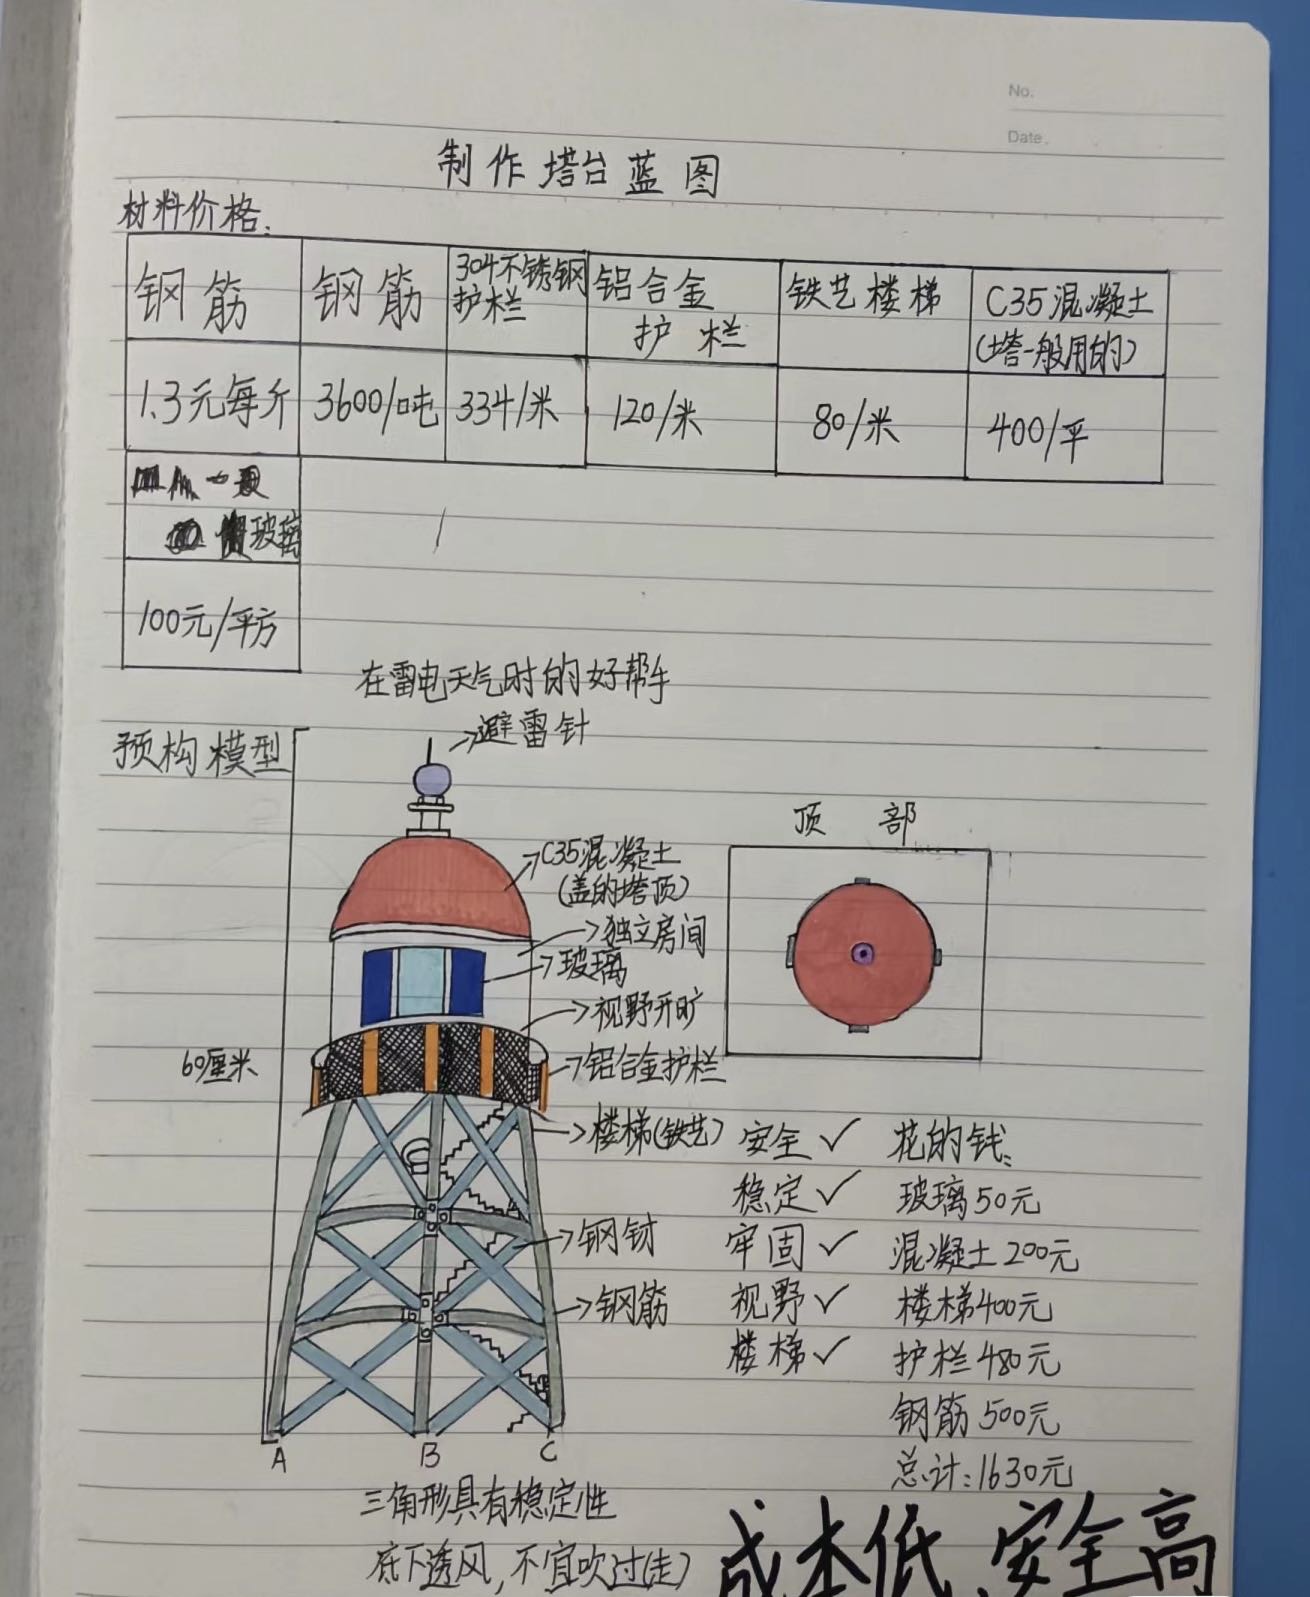 No.
Date.
制作塔台蓝图
材料价格:
钢筋 钢筋 304不锈钢护栏 铝合金护栏 铁艺楼梯 C35混凝土(塔一般用的)
1.3元每斤 3600/吨 334/米 120/米 80/米 400/平
玻璃
100元/平方
在雷电天气时的好帮手
避雷针
预构模型
顶部
C35混凝土
(盖的塔顶)
独立房间
玻璃
视野开旷
60厘米
铝合金护栏
楼梯(铁艺)
钢材
钢筋
安全✓
稳定✓
牢固✓
视野✓
楼梯✓
花的钱:
玻璃50元
混凝土200元
楼梯400元
护栏480元
钢筋500元
总计:1630元
A B C
三角形具有稳定性
底下透风,不宜吹过(走)
成本低、安全高